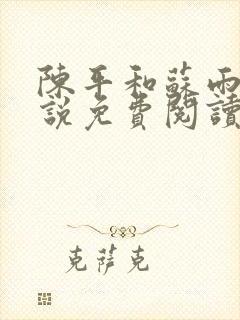 陳平和蘇雨
說免費閱讀
克萨克